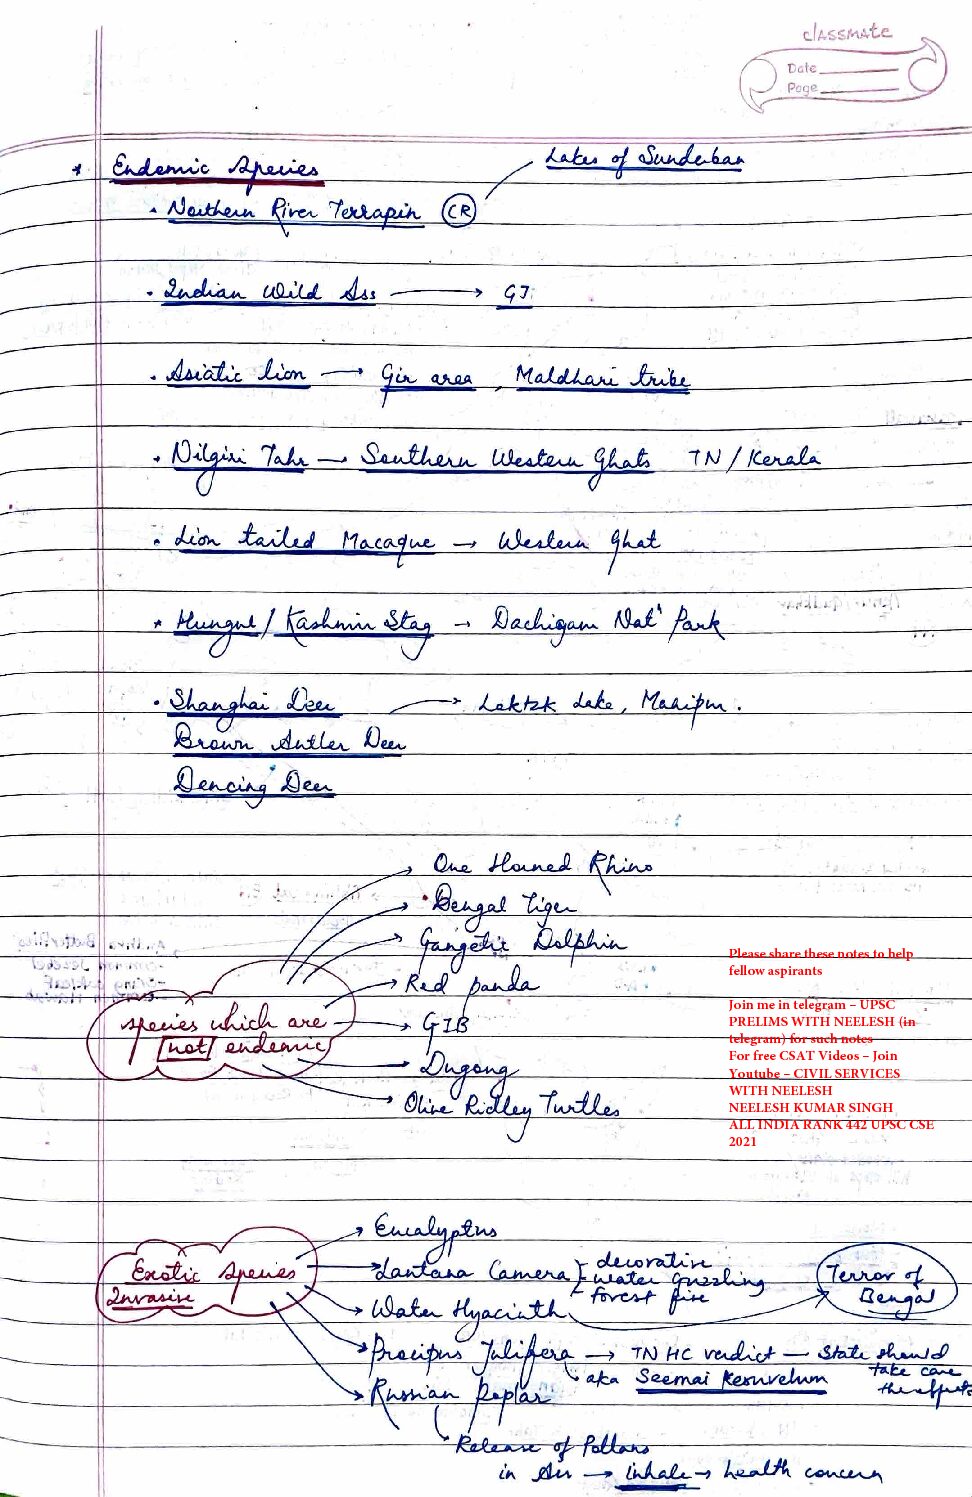 classmate
Date
Page
* Endemic Species
Lakes of Sunderban
• Northern River Terrapin (CR)
• Indian Wild Ass → GJ
• Asiatic lion → Gir area, Maldhari tribe
• Nilgiri Tahr → Southern Western Ghats TN/Kerala
• Lion tailed Macaque → Western Ghat
* Hungul/Kashmir Stag → Dachigam Nat' Park
• Shanghai Deer → Loktak Lake, Manipur.
Brown Antler Deer
Dencing Deer
One Horned Rhino
Bengal Tiger
Gangetic Dolphin
Red panda
species which are
not endemic
GIB
Dugong
Olive Ridley Turtles
Please share these notes to help
fellow aspirants
Join me in telegram – UPSC
PRELIMS WITH NEELESH (in
telegram) for such notes
For free CSAT Videos – Join
Youtube – CIVIL SERVICES
WITH NEELESH
NEELESH KUMAR SINGH
ALL INDIA RANK 442 UPSC CSE
2021
Exotic Species
Invasive
Eucalyptus
Lantana Camera
decorative
water guzzling
forest fire
Water Hyacinth
Terror of
Bengal
Procipus Julifera → TN HC verdict — State should
take care
the effects
aka Seemai Keruvelum
Russian Poplar
Release of Pollans
in Air → inhale → health concern